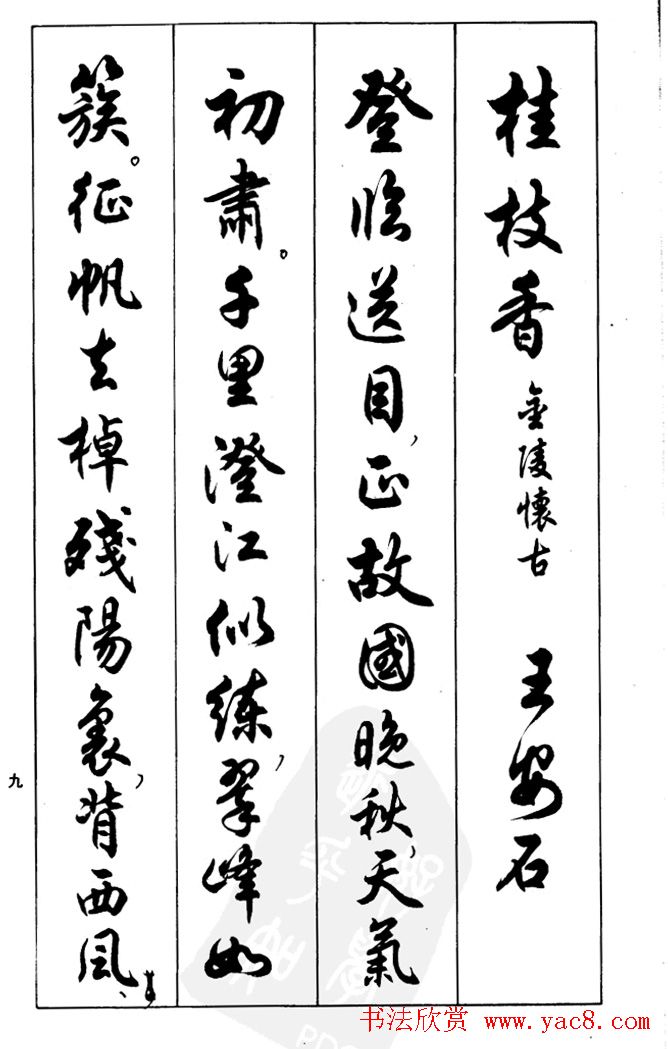 桂枝香 金陵懷古 王安石
登臨送目,正故國晚秋,天氣
初肅。千里澄江似練,翠峰如
簇。征帆去棹殘陽裏,背西風、
九
书法欣赏 www.yac8.com